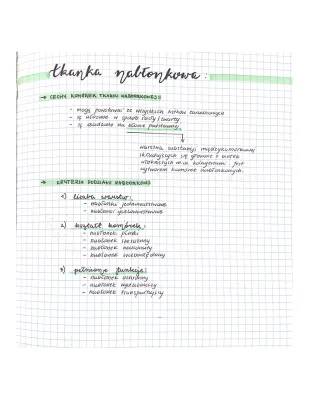 tkanka nabłonkowa:
→ CECHY KOMÓREK TKANKI NABŁONKOWEJ:
- mogą powstawać ze wszystkich listków zarodkowych
- są ułożone w sposób ścisły i zwarty
- są osadzone na błonie podstawnej
warstwa substancji międzykomórkowej
składających się głównie z włókien
białkowych m.in. kolagenu. Jest
wytworem komórek nabłonkowych.
→ KRYTERIA PODZIAŁU NABŁONKÓW:
1) liczba warstw:
- nabłonki jednowarstwowe
- nabłonki wielowarstwowe
2) kształt komórek:
- nabłonek płaski
- nabłonek sześcienny
- nabłonek walcowaty
- nabłonek wielorzędowy
3) pełnione funkcje:
- nabłonek ochronny
- nabłonek wydzielniczy
- nabłonek transportujący